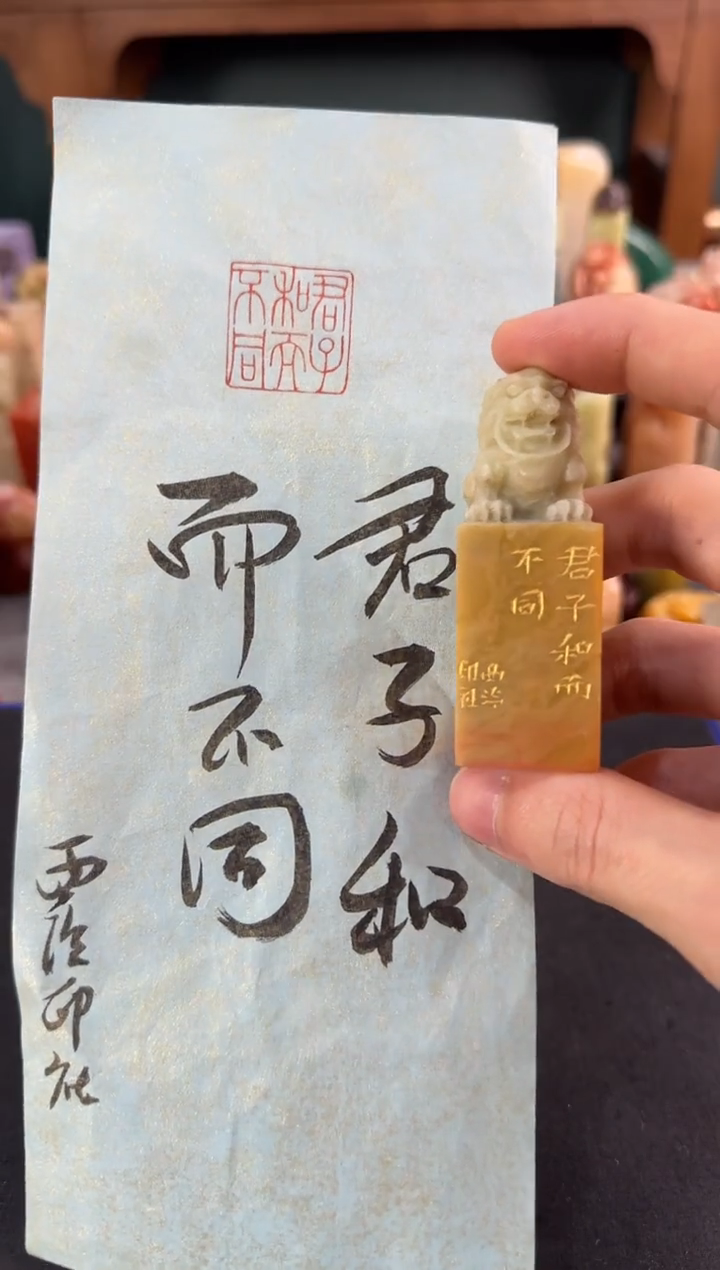 君子
和而
不同
君子和
而不同
西泠印社
君子和而
不同
西泠
印社